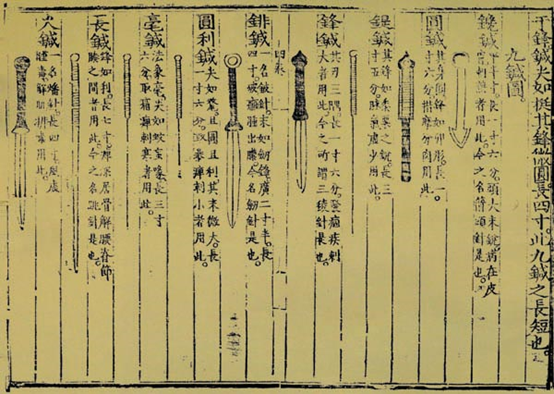 鋒鍼夫如挺其鋒微圓長四寸。此九鍼之長短也。
九鍼圖。
鑱鍼
平半寸長一寸六分頭大末銳病在皮
膚刺熱者用此。今之名箭頭針是也。
圓鍼
其身圓鋒如卵形長一
寸六分揩摩分肉用此。
鍉鍼
其鋒如黍粟之銳長三
寸五分脈氣虛少用此。
鋒鍼
其刃三隅長一寸六分發痼疾刺
大者用此。今之所謂三稜針是也。
錍鍼
一名鈹針末如劒鋒廣二寸半長
四寸破癰腫出膿今名劒針是也。
圓利鍼
夫如氂且圓且利其末微大。長
一寸六分取暴痺刺小者用此。
毫鍼
法象毫夫如蚊虻喙長三寸
六分取痛痺刺寒者用此。
長鍼
鋒如利。長七寸。痺深居骨解腰脊節
腠之間者用此。今之名跳針是也。
火鍼
一名燔針。長四寸風虛
腫毒解肌排毒用此。